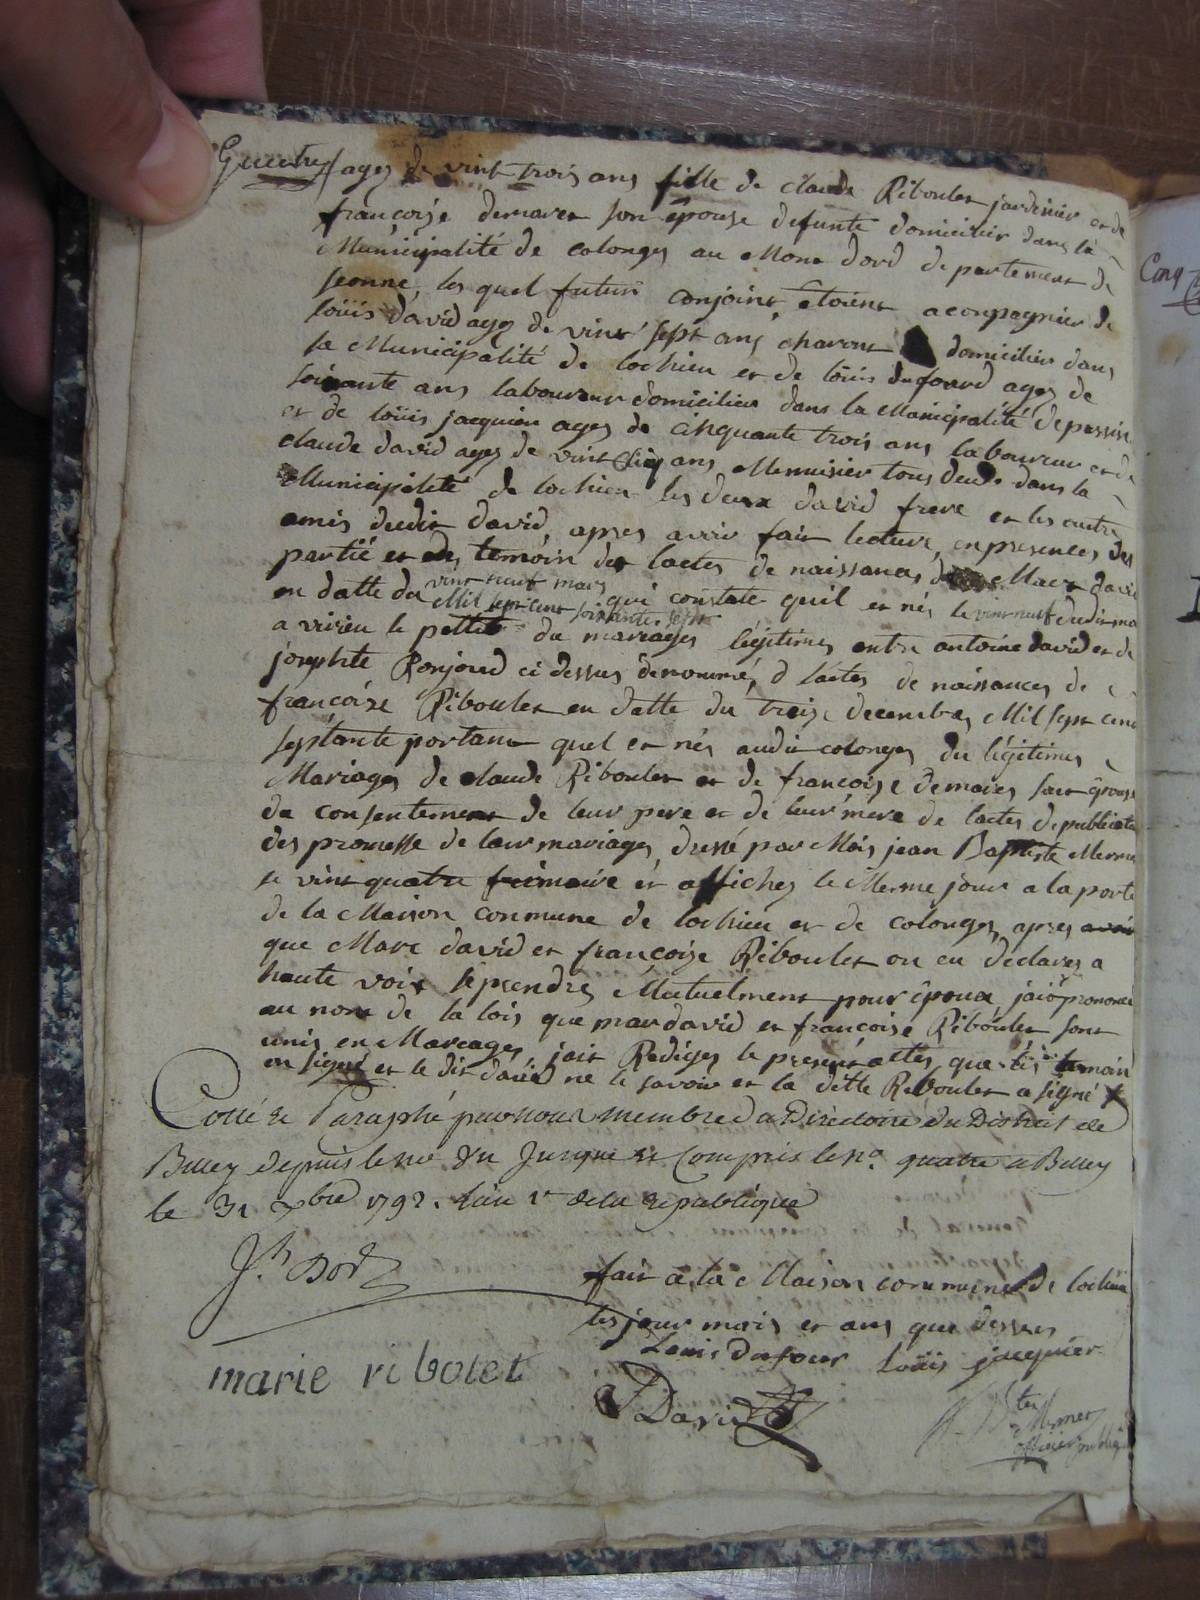 Quatre
ages de vint trois ans fille de claude Riboulet jardinier et de
françoise demares son épouse defunte domicilier dans la
Municipalité de colonges au Mont dord departement de
seonne, les quel futur conjoint étoient aconpagnier de
loüis david ages de vint sept ans charont domicilier dans
la Municipalité de lochieu et de loüis dufourd ages de
soixante ans laboureur domicilier dans la Municipalité de passin
et de loüis jacquier ages de cinquante trois ans laboureur et de
claude david ages de vint cinq ans Menuisier tous deux dans la
Municipalité de lochieu les deux david frere et les autre
amis dudit david, apres avoir fait lecture, en presences des
partié et des temoin des lactes de naissances de Marc david
en datte du vint neuf mars
Mil sept cent soixante sept qui constate quil et nés le vint neuf dudit mois
a virieu le pettit du mariages légitimes entre antoine david et de
josephte Ronjoud ci dessus denommé, d lactes de naissances de
françoise Riboulet en datte du treise decembre Mil sept cent
septante portant quel et nés audit colonges du légitimes
Mariages de claude Riboulet et de françoise demares sait épouse
du consentement de leur pere et de leur mere de lactes de publication
des promesse de leur mariages, dressé par Mois jean Baptiste Mermet
le vint quatre frimaire et affiches le Meme jour a la porte
de la Maison commune de lochieu et de colonges, apres avoir
que Marc david et françoise Riboulet on eu declares a
haute voix se prendre Mutuelment pour époux jai prononcé
au nom de la lois que marc david et françoise Riboulet sont
unis en Mareages jait Rediges le present actes que les temoin
on signé et le dit david ne le savoir et la ditte Riboulet a signé
Cotté et Paraphé par nous membre du Directoire du District de
Belley depuis le no. un jusques et Compris le no. quatre a Belley
le 31 xbre 1792. L'an 1er de la république
fait a la Maison commune de lochieu
les jour mois et ans que dessus
Louis dufour loüis jacquier
marie ribolet
David
Mermet
officier public
Cinq